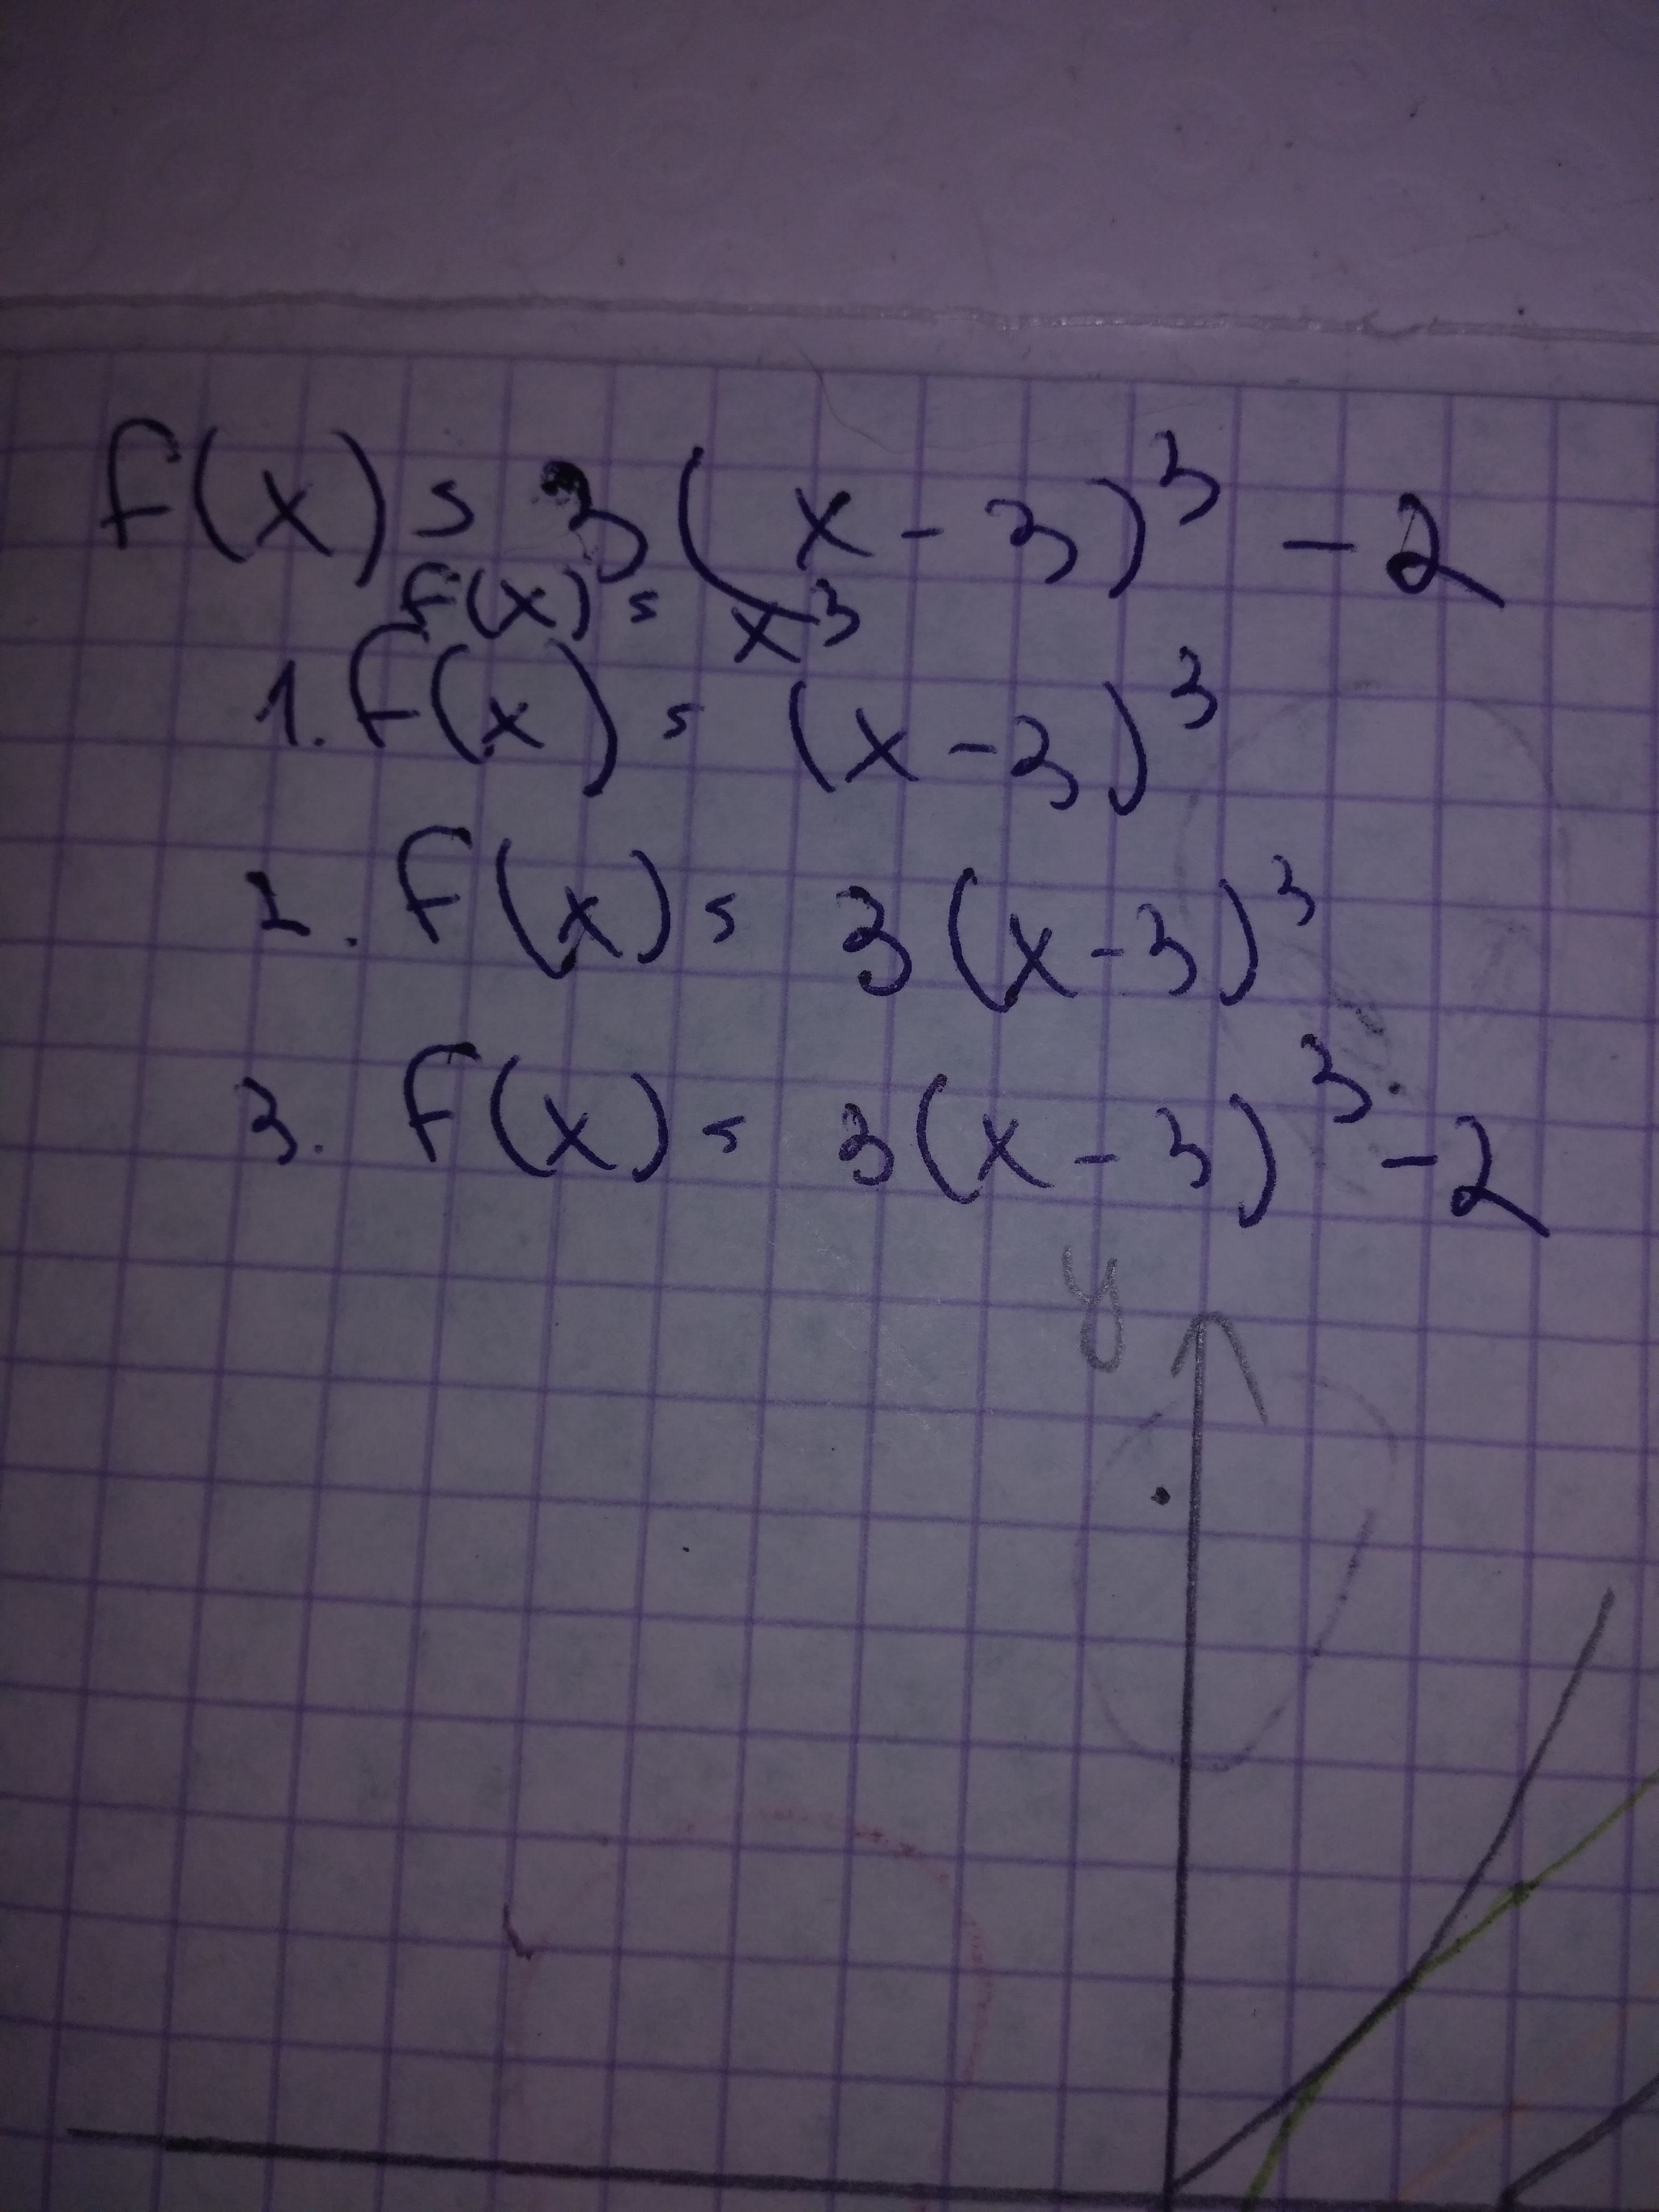 f(x) = 3(x-3)³ -2
f(x) = x³
1. f(x) = (x-3)³
2. f(x) = 3(x-3)³
3. f(x) = 3(x-3)³ -2
y